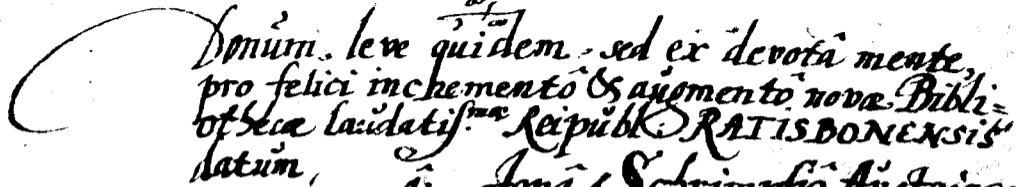 Donum, leve quidem, sed ex devotâ mente,
pro felici inchementô & augmentô novæ Bibli=
othecæ laudatiss.mæ Reipubl. RATISBONENSIS
datum,
â Jonâ